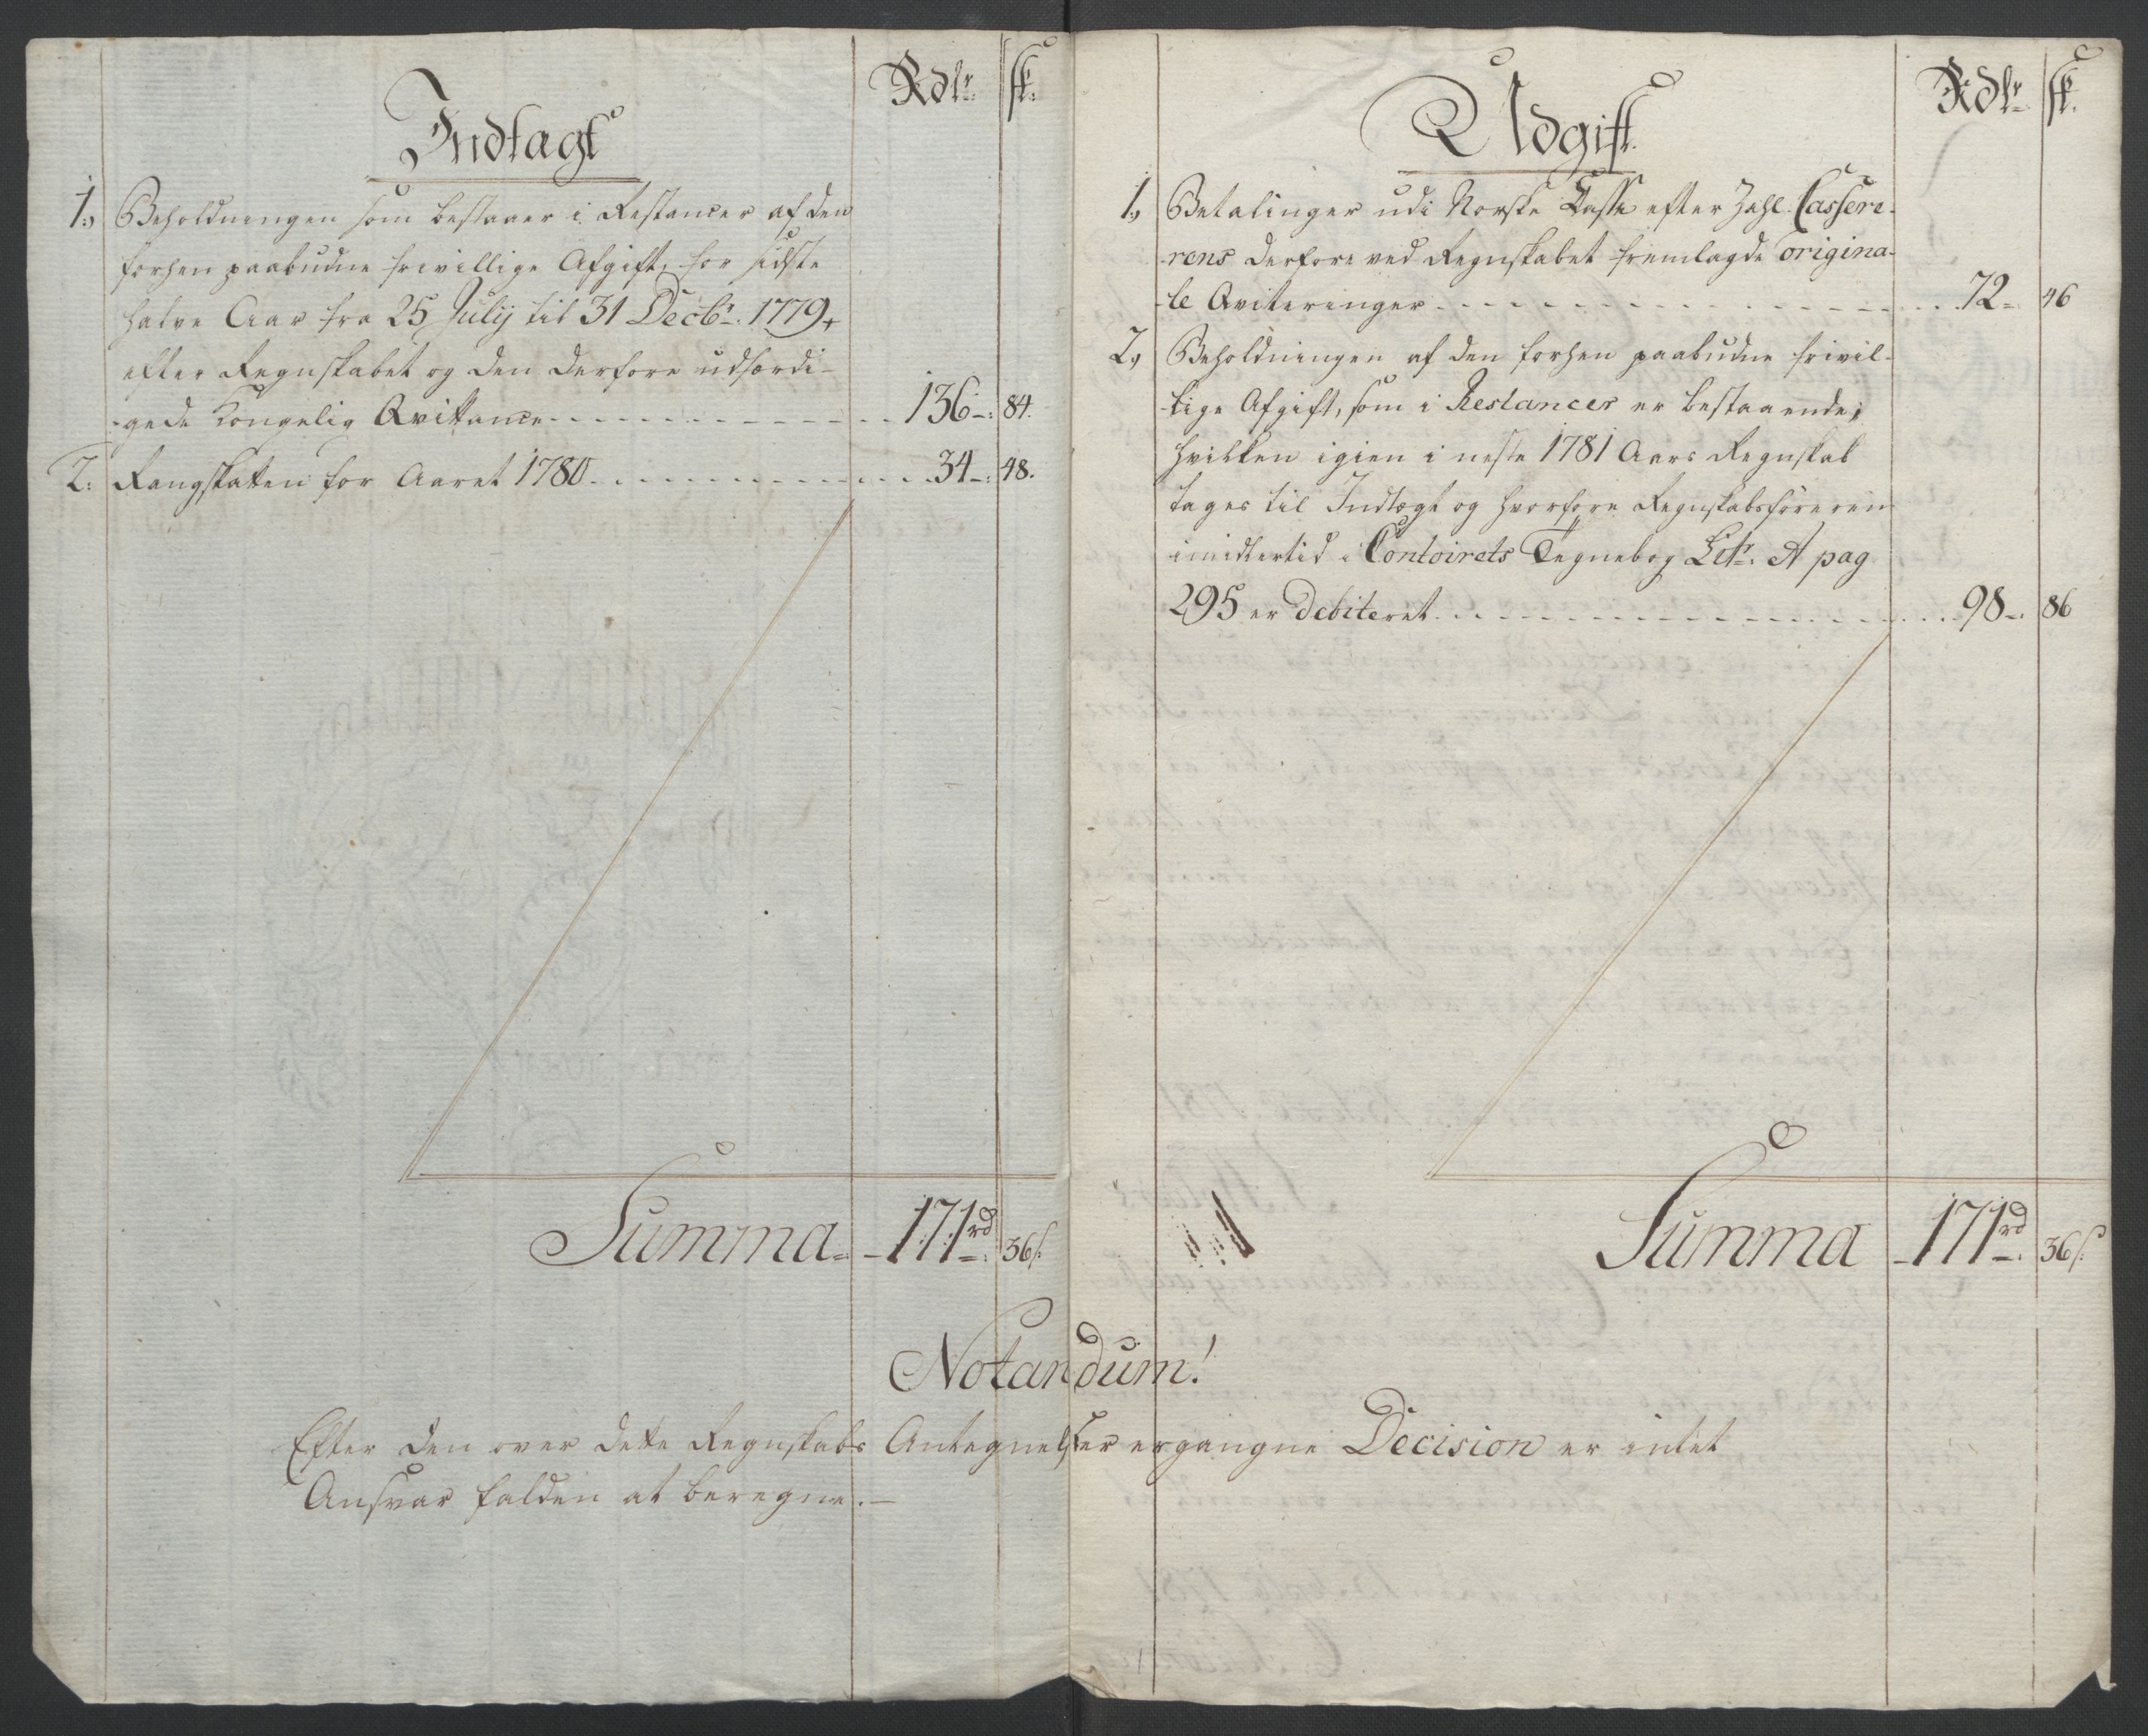 Rdlr
sk:
Indtagt
1., Beholdningen som bestaaer i Restancer af den
forhen paabudne frivillige Afgift, for sidste
halve Aar fra 25 Julij til 31 Decbr. 1779,
efter Regnskabet og den derfore udfærdi-
-gede Kongelig Qvittance . . . 136 -: 84.
2: Rangskatten for Aaret 1780 . . . 34 -: 48.
Summa - 171 rd -: 36 s:
Rdlr
sk.
Udgift.
1., Betalinger udi Norske Casse efter Zahl-Cassere-
-rens derfore ved Regnskabet fremlagde origina-
-le Qviteringer . . . 72 - 46
2., Beholdningen af den forhen paabudne frivil-
-lige Afgift, som i Restancer er bestaaende;
hvilken igien i neste 1781 Aars Regnskab
tages til Indtægt og hvorfore Regnskabsføreren
imidlertid i Contoirets Tegnebog Litr: A pag
295 er debiteret . . . 98 -: 86
Summa - 171 rd -: 36 s:
Notandum!
Efter den over dette Regnskabs Antegnelser ergangne Decision er intet
Ansvar falden at beregne. -